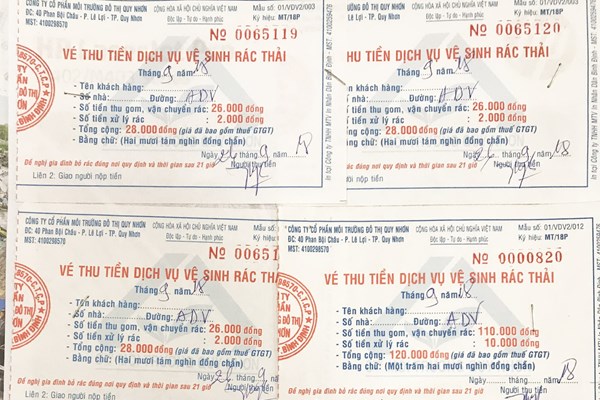 CÔNG TY CỔ PHẦN MÔI TRƯỜNG ĐÔ THỊ QUY NHƠN
ĐC: 40 Phan Bội Châu, P. Lê Lợi - TP. Quy Nhơn
MST: 4100298570
CỘNG HÒA XÃ HỘI CHỦ NGHĨA VIỆT NAM
Độc lập - Tự do - Hạnh phúc
Mẫu số: 01/VDV2/003
Ký hiệu: MT/18P
Nº 0065119
VÉ THU TIỀN DỊCH VỤ VỆ SINH RÁC THẢI
Tháng 9 năm 18
- Tên khách hàng:
- Số nhà: Đường: ADV
- Số tiền thu gom, vận chuyển rác: 26.000 đồng
- Số tiền xử lý rác : 2.000 đồng
- Tổng cộng: 28.000 đồng (giá đã bao gồm thuế GTGT)
- Bằng chữ: (Hai mươi tám nghìn đồng chẵn)
Ngày 26 tháng 9 năm 18
Đề nghị gia đình bỏ rác đúng nơi quy định và thời gian sau 21 giờ
Người thu tiền
Liên 2: Giao người nộp tiền
P. Lê Lợi - TP. Quy Nhơn
CỘNG HÒA XÃ HỘI CHỦ NGHĨA VIỆT NAM
Độc lập - Tự do - Hạnh phúc
Mẫu số: 01/VDV2/003
Ký hiệu: MT/18P
Nº 0065120
THU TIỀN DỊCH VỤ VỆ SINH RÁC THẢI
Tháng 9 năm 18
hàng:
Đường: ADV
gom, vận chuyển rác: 26.000 đồng
lý rác : 2.000 đồng
28.000 đồng (giá đã bao gồm thuế GTGT)
(Hai mươi tám nghìn đồng chẵn)
Ngày 26 tháng 9 năm 18
bỏ rác đúng nơi quy định và thời gian sau 21 giờ
Người thu tiền
người nộp tiền
CÔNG TY CỔ PHẦN MÔI TRƯỜNG ĐÔ THỊ QUY NHƠN
ĐC: 40 Phan Bội Châu, P. Lê Lợi - TP. Quy Nhơn
MST: 4100298570
CỘNG HÒA XÃ HỘI CHỦ NGHĨA VIỆT NAM
Độc lập - Tự do - Hạnh phúc
Nº 00651
VÉ THU TIỀN DỊCH VỤ VỆ SINH RÁC THẢI
Tháng 9 năm 18
- Tên khách hàng:
- Số nhà: Đường: ADV
- Số tiền thu gom, vận chuyển rác: 26.000 đồng
- Số tiền xử lý rác : 2.000 đồng
- Tổng cộng: 28.000 đồng (giá đã bao gồm thuế GTGT)
- Bằng chữ: (Hai mươi tám nghìn đồng chẵn)
Ngày 26 tháng 9
Đề nghị gia đình bỏ rác đúng nơi quy định và thời gian sau 21 giờ
Liên 2: Giao người nộp tiền
CÔNG TY CỔ PHẦN MÔI TRƯỜNG ĐÔ THỊ QUY NHƠN
ĐC: 40 Phan Bội Châu, P. Lê Lợi - TP. Quy Nhơn
MST: 4100298570
CỘNG HÒA XÃ HỘI CHỦ NGHĨA VIỆT NAM
Độc lập - Tự do - Hạnh phúc
Mẫu số: 01/VDV2/012
Ký hiệu: MT/18P
Nº 0000820
VÉ THU TIỀN DỊCH VỤ VỆ SINH RÁC THẢI
Tháng 9 năm 18
- Tên khách hàng:
- Số nhà: Đường: ADV
- Số tiền thu gom, vận chuyển rác: 110.000 đồng
- Số tiền xử lý rác : 10.000 đồng
- Tổng cộng: 120.000 đồng (giá đã bao gồm thuế GTGT)
- Bằng chữ: (Một trăm hai mươi nghìn đồng chẵn)
Ngày tháng năm 18
Đề nghị gia đình bỏ rác đúng nơi quy định và thời gian sau 21 giờ
Người thu tiền
Liên 2: Giao người nộp tiền